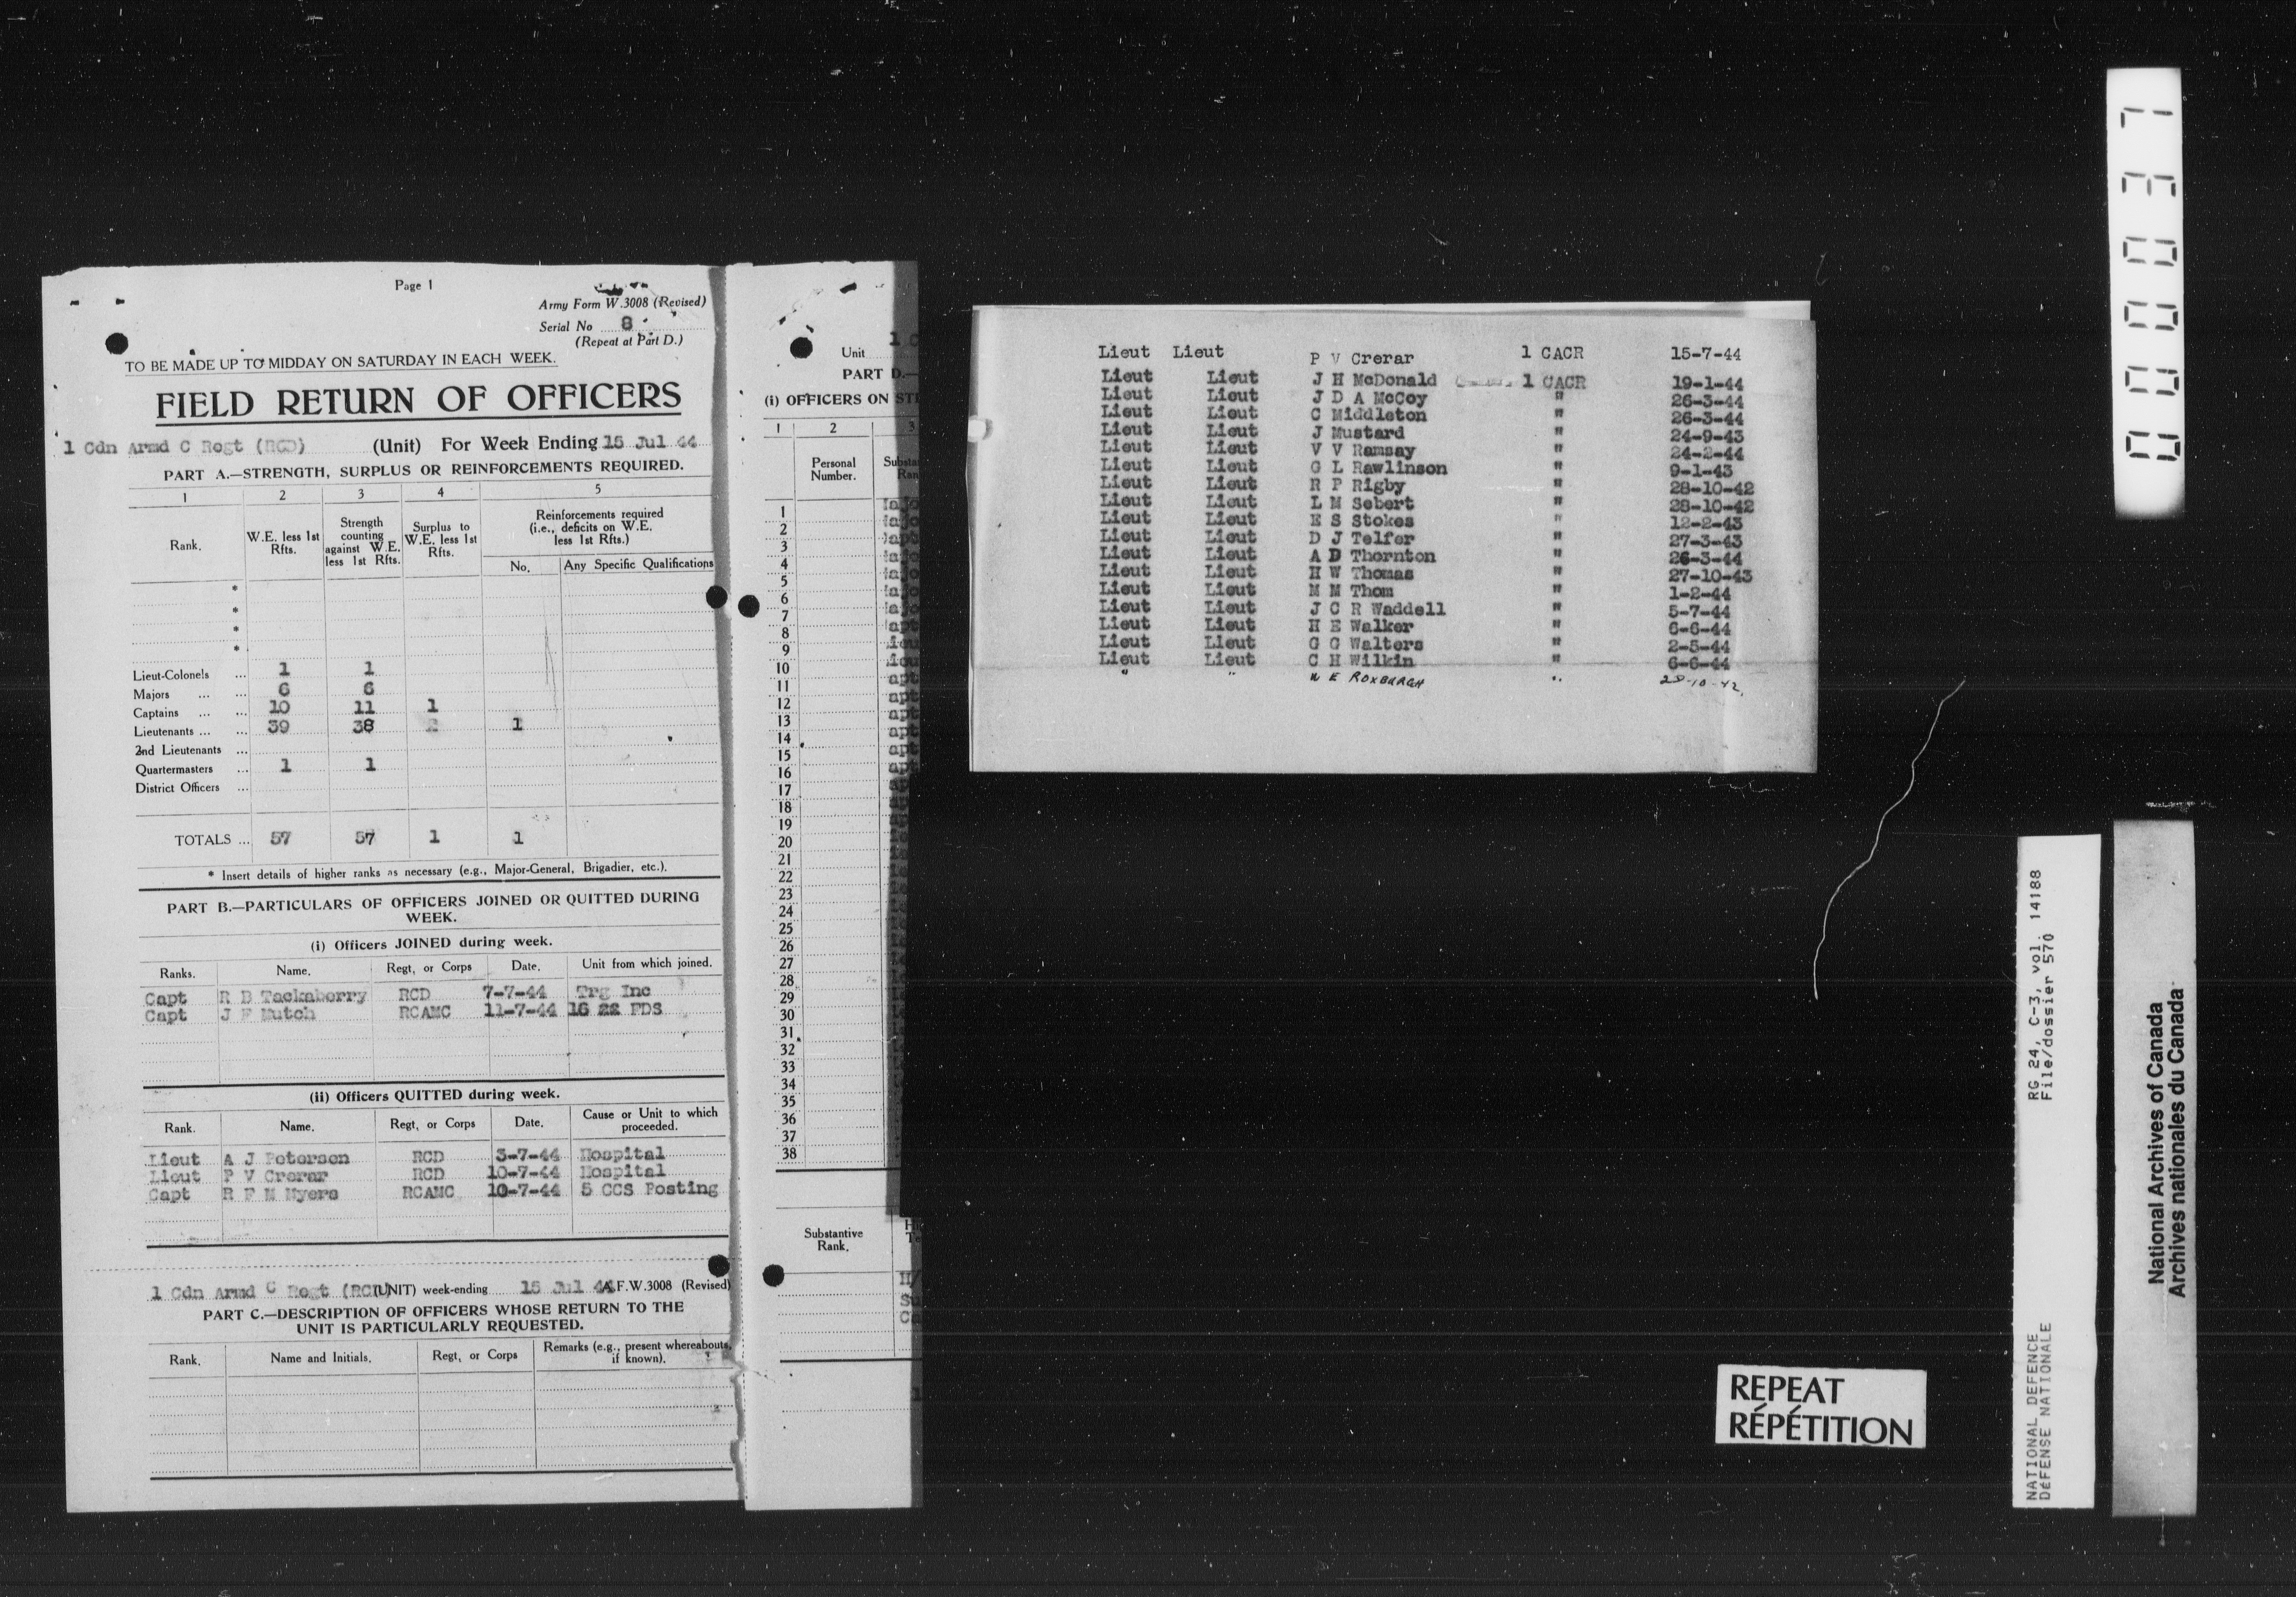 Page 1
Army Form W.3008 (Revised)
Serial No 8
(Repeat at Part D.)
TO BE MADE UP TO MIDDAY ON SATURDAY IN EACH WEEK.
FIELD RETURN OF OFFICERS
1 Cdn Armd C Regt (RCD) (Unit) For Week Ending 15 Jul 44
PART A.—STRENGTH, SURPLUS OR REINFORCEMENTS REQUIRED.
1 2 3 4 5
Rank. W.E. less 1st Rfts. Strength counting against W.E. less 1st Rfts. Surplus to W.E. less 1st Rfts. Reinforcements required (i.e., deficits on W.E. less 1st Rfts.)
No. Any Specific Qualifications
*
*
*
*
Lieut-Colonels ... 1 1
Majors ... ... 6 6
Captains ... ... 10 11 1
Lieutenants ... ... 39 38 1
2nd Lieutenants ...
Quartermasters ... 1 1
District Officers ...
TOTALS ... 57 57 1 1
* Insert details of higher ranks as necessary (e.g., Major-General, Brigadier, etc.).
PART B.—PARTICULARS OF OFFICERS JOINED OR QUITTED DURING
WEEK.
(i) Officers JOINED during week.
Ranks. Name. Regt, or Corps Date. Unit from which joined.
Capt R B Tackaberry RCD 7-7-44 Trg Inc
Capt J F Mutch RCAMC 11-7-44 16 FDS
(ii) Officers QUITTED during week.
Rank. Name. Regt, or Corps Date. Cause or Unit to which proceeded.
Lieut A J Petersen RCD 3-7-44 Hospital
Lieut P V Crerar RCD 10-7-44 Hospital
Capt R F M Myers RCAMC 10-7-44 5 CCS Posting
1 Cdn Armd C Regt (RCD) (UNIT) week-ending 15 Jul 44 A.F.W.3008 (Revised)
PART C.—DESCRIPTION OF OFFICERS WHOSE RETURN TO THE
UNIT IS PARTICULARLY REQUESTED.
Rank. Name and Initials. Regt, or Corps Remarks (e.g., present whereabouts, if known).
1 C
Unit
PART D.—
(i) OFFICERS ON ST
1 2 3
Personal Number. Substa Ran
1
2
3
4
5
6
7
8
9
10
11
12
13
14
15
16
17
18
19
20
21
22
23
24
25
26
27
28
29
30
31
32
33
34
35
36
37
38
Substantive Rank.
Lieut Lieut P V Crerar 1 CACR 15-7-44
Lieut Lieut J H McDonald 1 CACR 19-1-44
Lieut Lieut J D A McCoy " 26-3-44
Lieut Lieut C Middleton " 26-3-44
Lieut Lieut J Mustard " 24-9-43
Lieut Lieut V V Ramsay " 24-2-44
Lieut Lieut G L Rawlinson " 9-1-43
Lieut Lieut R P Rigby " 28-10-42
Lieut Lieut L M Sebert " 28-10-42
Lieut Lieut E S Stokes " 12-2-43
Lieut Lieut D J Telfer " 27-3-43
Lieut Lieut A D Thornton " 26-3-44
Lieut Lieut H W Thomas " 27-10-43
Lieut Lieut M M Thom " 1-2-44
Lieut Lieut J C R Waddell " 5-7-44
Lieut Lieut H E Walker " 6-6-44
Lieut Lieut G G Walters " 2-5-44
Lieut Lieut C H Wilkin " 6-6-44
" " W E ROXBURGH " 28-10-42.
000037
REPEAT
RÉPÉTITION
NATIONAL DEFENCE RG 24, C-3, vol. 14188
DÉFENSE NATIONALE File/dossier 570
National Archives of Canada
Archives nationales du Canada